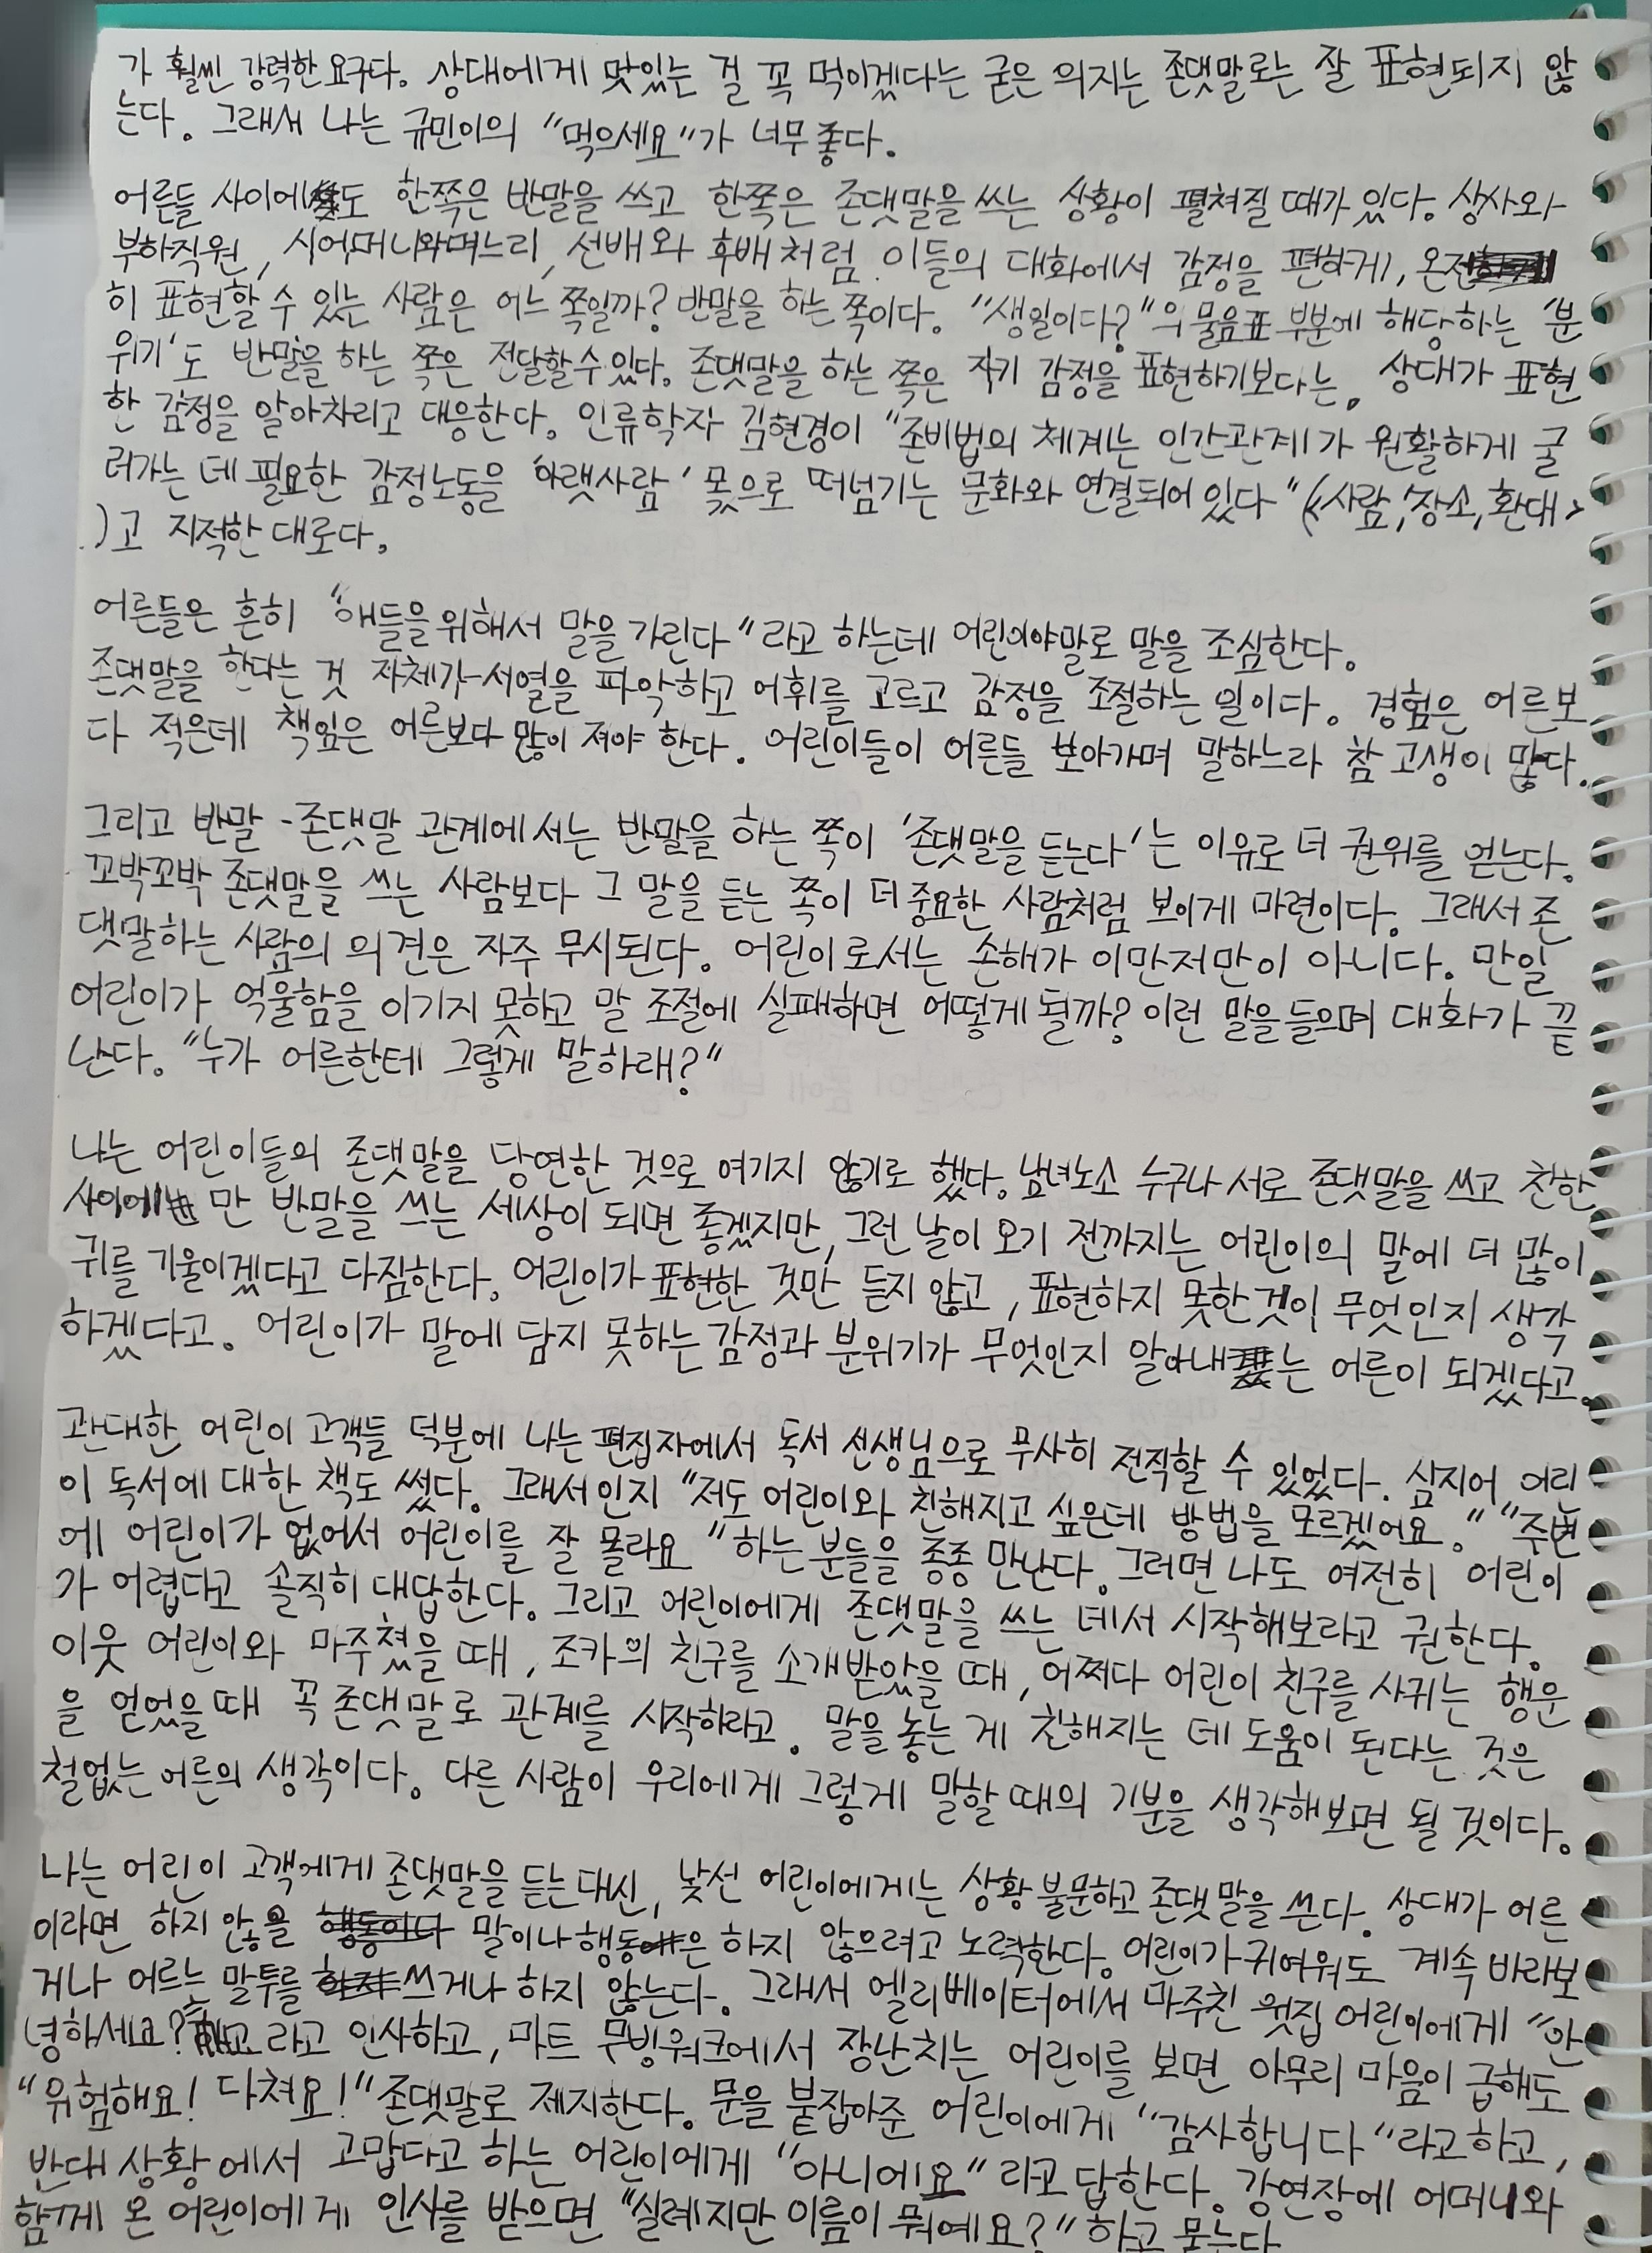 가 훨씬 강력한 요구다. 상대에게 맛있는 걸 꼭 먹이겠다는 굳은 의지는 존댓말로는 잘 표현되지 않
는다. 그래서 나는 규민이의 "먹으세요"가 너무 좋다.
어른들 사이에도 한쪽은 반말을 쓰고 한쪽은 존댓말을 쓰는 상황이 펼쳐질 때가 있다. 상사와
부하직원, 시어머니와며느리, 선배와 후배처럼. 이들의 대화에서 감정을 편하게, 온전
히 표현할 수 있는 사람은 어느 쪽일까? 반말을 하는 쪽이다. "생일이다?"의 물음표 부분에 해당하는 '분
위기'도 반말을 하는 쪽은 전달할 수 있다. 존댓말을 하는 쪽은 자기 감정을 표현하기보다는, 상대가 표현
한 감정을 알아차리고 대응한다. 인류학자 김현경이 "존비법의 체계는 인간관계가 원활하게 굴
러가는 데 필요한 감정노동을 '아랫사람' 몫으로 떠넘기는 문화와 연결되어 있다"(<사람, 장소, 환대>
)고 지적한 대로다.
어른들은 흔히 "애들을 위해서 말을 가린다"라고 하는데 어린이야말로 말을 조심한다.
존댓말을 한다는 것 자체가 서열을 파악하고 어휘를 고르고 감정을 조절하는 일이다. 경험은 어른보
다 적은데 책임은 어른보다 많이 져야 한다. 어린이들이 어른들 보아가며 말하느라 참 고생이 많다.
그리고 반말-존댓말 관계에서는 반말을 하는 쪽이 '존댓말을 듣는다'는 이유로 더 권위를 얻는다.
꼬박꼬박 존댓말을 쓰는 사람보다 그 말을 듣는 쪽이 더 중요한 사람처럼 보이게 마련이다. 그래서 존
댓말하는 사람의 의견은 자주 무시된다. 어린이로서는 손해가 이만저만이 아니다. 만일
어린이가 억울함을 이기지 못하고 말 조절에 실패하면 어떻게 될까? 이런 말을 들으며 대화가 끝
난다. "누가 어른한테 그렇게 말하래?"
나는 어린이들의 존댓말을 당연한 것으로 여기지 않기로 했다. 남녀노소 누구나 서로 존댓말을 쓰고 친한
사이에 만 반말을 쓰는 세상이 되면 좋겠지만, 그런 날이 오기 전까지는 어린이의 말에 더 많이
귀를 기울이겠다고 다짐한다. 어린이가 표현한 것만 듣지 않고, 표현하지 못한것이 무엇인지 생각
하겠다고. 어린이가 말에 담지 못하는 감정과 분위기가 무엇인지 알아내는 어른이 되겠다고.
관대한 어린이 고객들 덕분에 나는 편집자에서 독서 선생님으로 무사히 전직할 수 있었다. 심지어 어린
이 독서에 대한 책도 썼다. 그래서인지 "저도 어린이와 친해지고 싶은데 방법을 모르겠어요." "주변
에 어린이가 없어서 어린이를 잘 몰라요"하는 분들을 종종 만난다. 그러면 나도 여전히 어린이
가 어렵다고 솔직히 대답한다. 그리고 어린이에게 존댓말을 쓰는 데서 시작해보라고 권한다.
이웃 어린이와 마주쳤을 때, 조카의 친구를 소개받았을 때, 어쩌다 어린이 친구를 사귀는 행운
을 얻었을 때 꼭 존댓말로 관계를 시작하라고. 말을 놓는 게 친해지는 데 도움이 된다는 것은
철없는 어른의 생각이다. 다른 사람이 우리에게 그렇게 말할 때의 기분을 생각해보면 될 것이다.
나는 어린이 고객에게 존댓말을 듣는 대신, 낯선 어린이에게는 상황 불문하고 존댓말을 쓴다. 상대가 어른
이라면 하지 않을 말이나 행동은 하지 않으려고 노력한다. 어린이가 귀여워도 계속 바라보
거나 어르는 말투를 쓰거나 하지 않는다. 그래서 엘리베이터에서 마주친 윗집 어린이에게 "안
녕하세요?"라고 인사하고, 마트 무빙워크에서 장난치는 어린이를 보면 아무리 마음이 급해도
"위험해요! 다쳐요!" 존댓말로 제지한다. 문을 붙잡아준 어린이에게 "감사합니다"라고 하고,
반대 상황에서 고맙다고 하는 어린이에게 "아니에요"라고 답한다. 강연장에 어머니와
함께 온 어린이에게 인사를 받으면 "실례지만 이름이 뭐예요?" 하고 묻는다